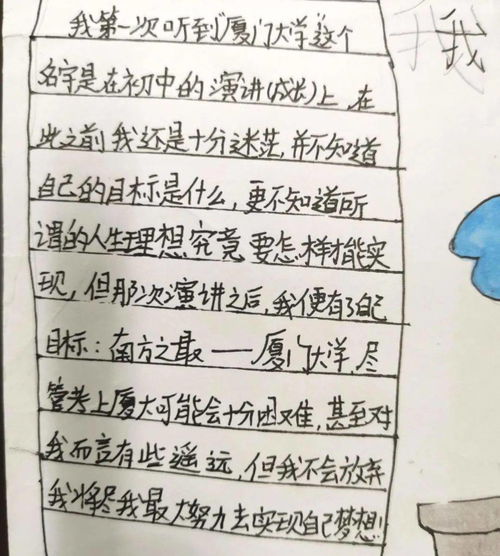 我第一次听到厦门大学这个
名字是在初中的演讲(成长)上,在
此之前我还是十分迷茫,并不知道
自己的目标是什么,更不知道所
谓的人生理想究竟要怎样才能实
现,但那次演讲之后,我便有了自己
目标:南方之最——厦门大学,尽
管考上厦大可能会十分困难,甚至对
我而言有些遥远,但我不会放弃
我将尽我最大努力去实现自己梦想!
我
我